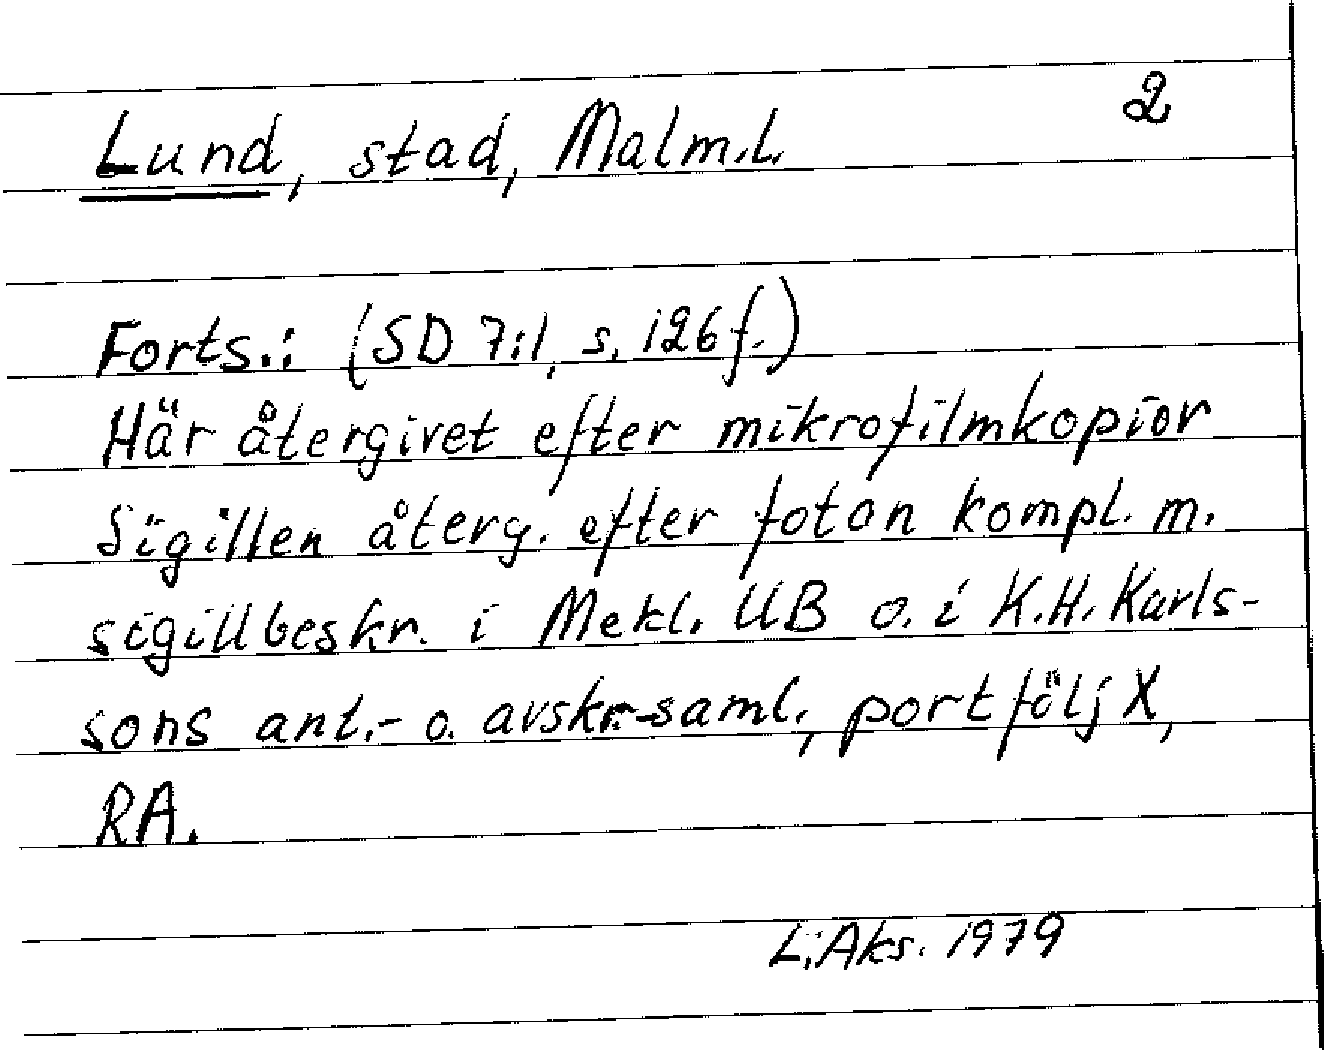 2
Lund, stad, Malm.l.
Forts.: (SD 7:1, s. 126 f.)
Här återgivet efter mikrofilmkopior
Sigillen återg. efter foton kompl. m.
sigillbeskr. i Mekl. UB o. i K.H. Karls-
sons ant.- o. avskr-saml., portfölj X,
RA.
L. Aks. 1979